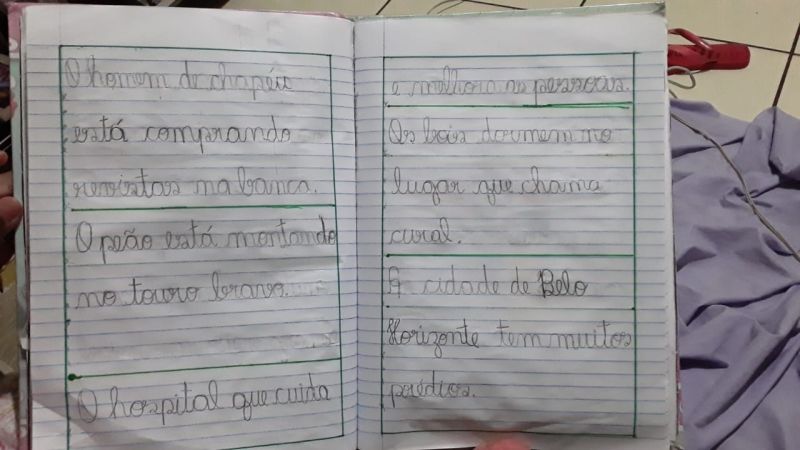 O homem de chapéu
está comprando
revistas na banca.
O peão está montando
no touro bravo.
O hospital que cuida
e melhora as pessoas.
Os bois dormem no
lugar que chama
cural.
A cidade de Belo
Horizonte tem muitos
prédios.